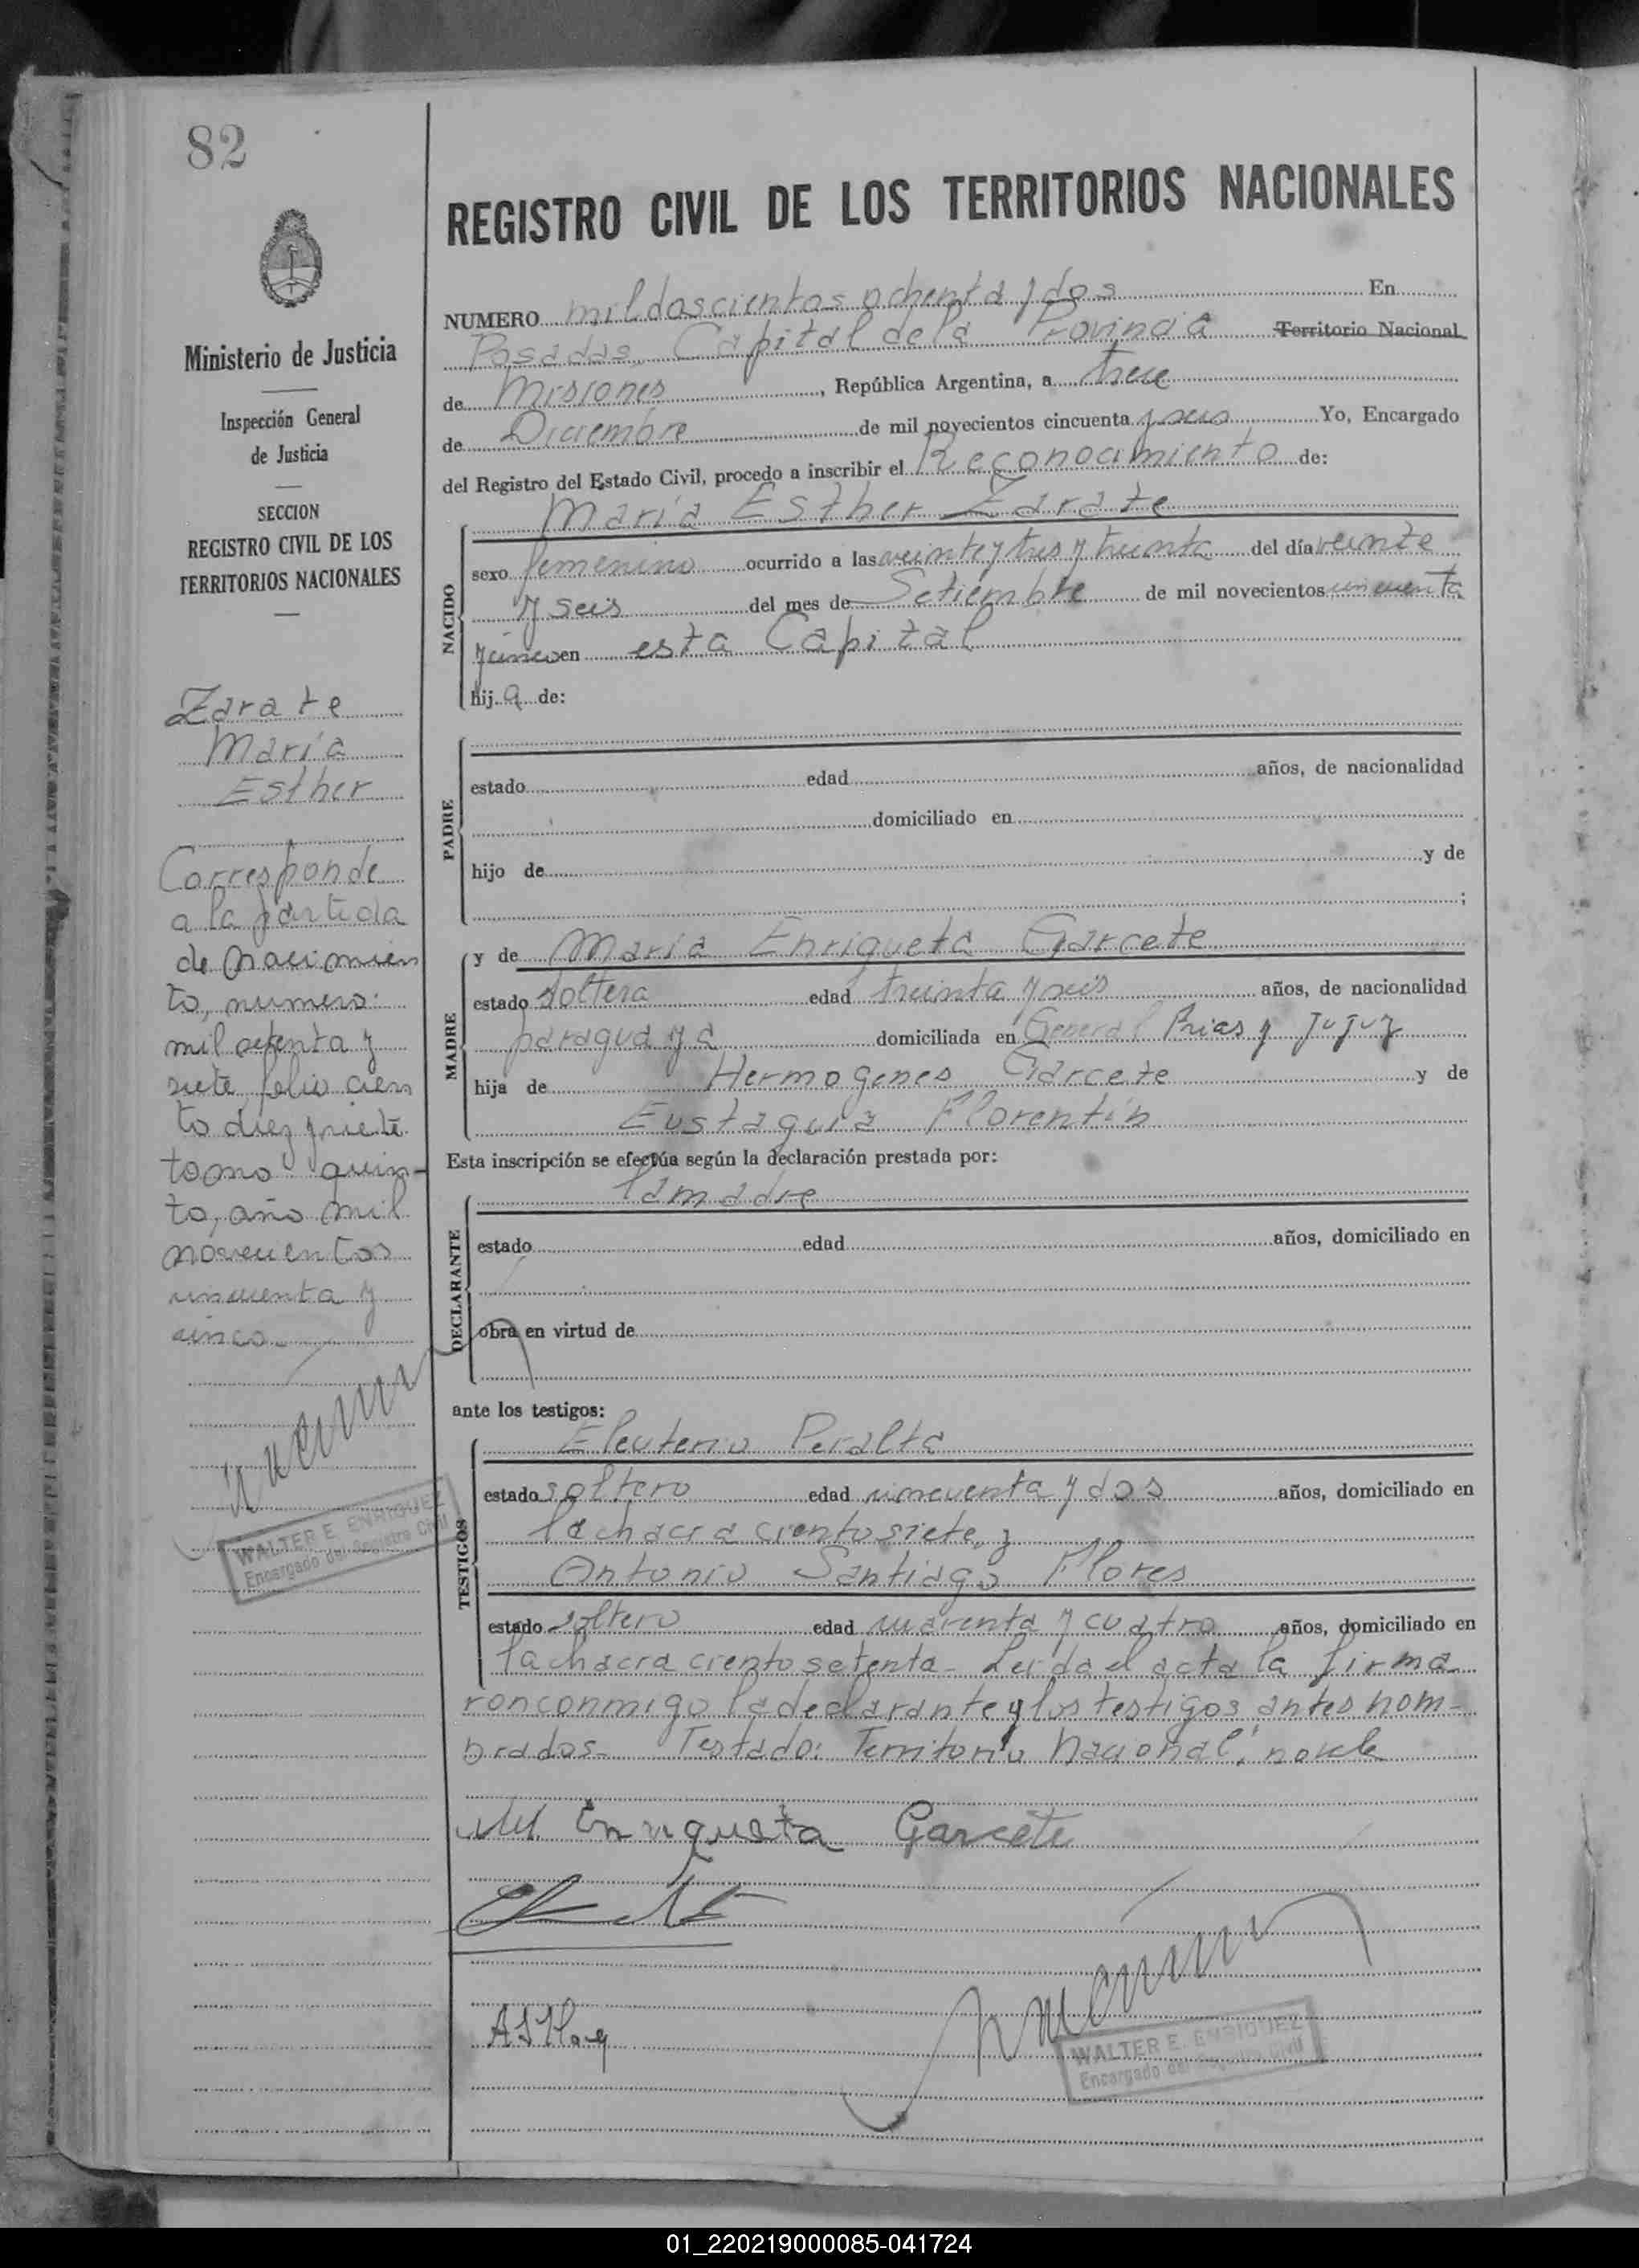 82
Ministerio de Justicia
Inspección General
de Justicia
SECCION
REGISTRO CIVIL DE LOS
TERRITORIOS NACIONALES
Zarate
María
Esther
Corresponde
a la partida
de nacimien
to, numero:
mil setenta y
siete, folio cien
to diez y siete
tomo quin-
to, año mil
novecientos
cincuenta y
cinco
WALTER E. ENRIQUEZ
Encargado del Registro Civil
REGISTRO CIVIL DE LOS TERRITORIOS NACIONALES
NUMERO mil doscientos ochenta y dos En
Posadas, Capital de la Provincia Territorio Nacional
de Misiones, República Argentina, a trece
de Diciembre de mil novecientos cincuenta y seis Yo, Encargado
del Registro del Estado Civil, procedo a inscribir el Reconocimiento de:
María Esther Zarate
NACIDO
sexo femenino ocurrido a las veinte y tres y treinta del día veinte
y seis del mes de Setiembre de mil novecientos cincuenta
y cinco en esta Capital
hij a de:
PADRE
estado edad años, de nacionalidad
domiciliado en
hijo de y de
;
MADRE
y de María Enriqueta Garcete
estado soltera edad treinta y seis años, de nacionalidad
paraguaya domiciliada en General Frias y Jujuy
hija de Hermogenes Garcete y de
Eustaquia Florentín
Esta inscripción se efectúa según la declaración prestada por:
la madre
DECLARANTE
estado edad años, domiciliado en
obra en virtud de
ante los testigos:
TESTIGOS
Eleuterio Peralta
estado soltero edad cincuenta y dos años, domiciliado en
la chacra ciento siete, y
Antonio Santiago Flores
estado soltero edad cuarenta y cuatro años, domiciliado en
la chacra ciento setenta - Leida el acta la firma
ron conmigo la declarante y los testigos antes nom-
brados - Testado: Territorio Nacional, no vale
M. Enriqueta Garcete
WALTER E. ENRIQUEZ
Encargado del Registro Civil
01_220219000085-041724